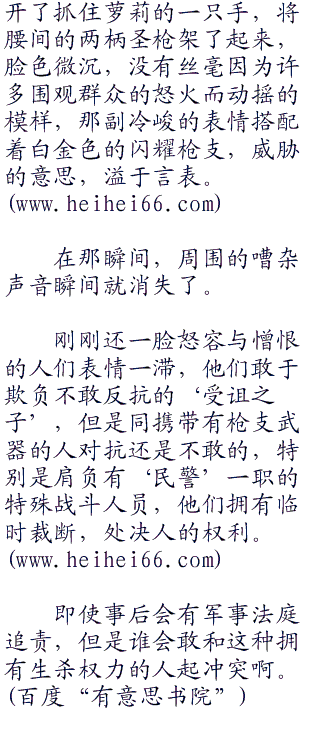 开了抓住萝莉的一只手，将
腰间的两柄圣枪架了起来，
脸色微沉，没有丝毫因为许
多围观群众的怒火而动摇的
模样，那副冷峻的表情搭配
着白金色的闪耀枪支，威胁
的意思，溢于言表。
(www.heihei66.com)
在那瞬间，周围的嘈杂
声音瞬间就消失了。
刚刚还一脸怒容与憎恨
的人们表情一滞，他们敢于
欺负不敢反抗的‘受诅之
子’，但是同携带有枪支武
器的人对抗还是不敢的，特
别是肩负有‘民警’一职的
特殊战斗人员，他们拥有临
时裁断，处决人的权利。
(www.heihei66.com)
即使事后会有军事法庭
追责，但是谁会敢和这种拥
有生杀权力的人起冲突啊。
(百度“有意思书院”)